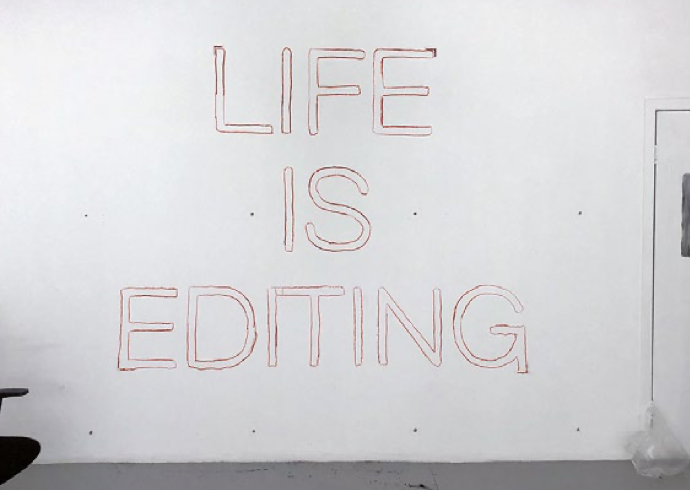 LIFE
IS
EDITING